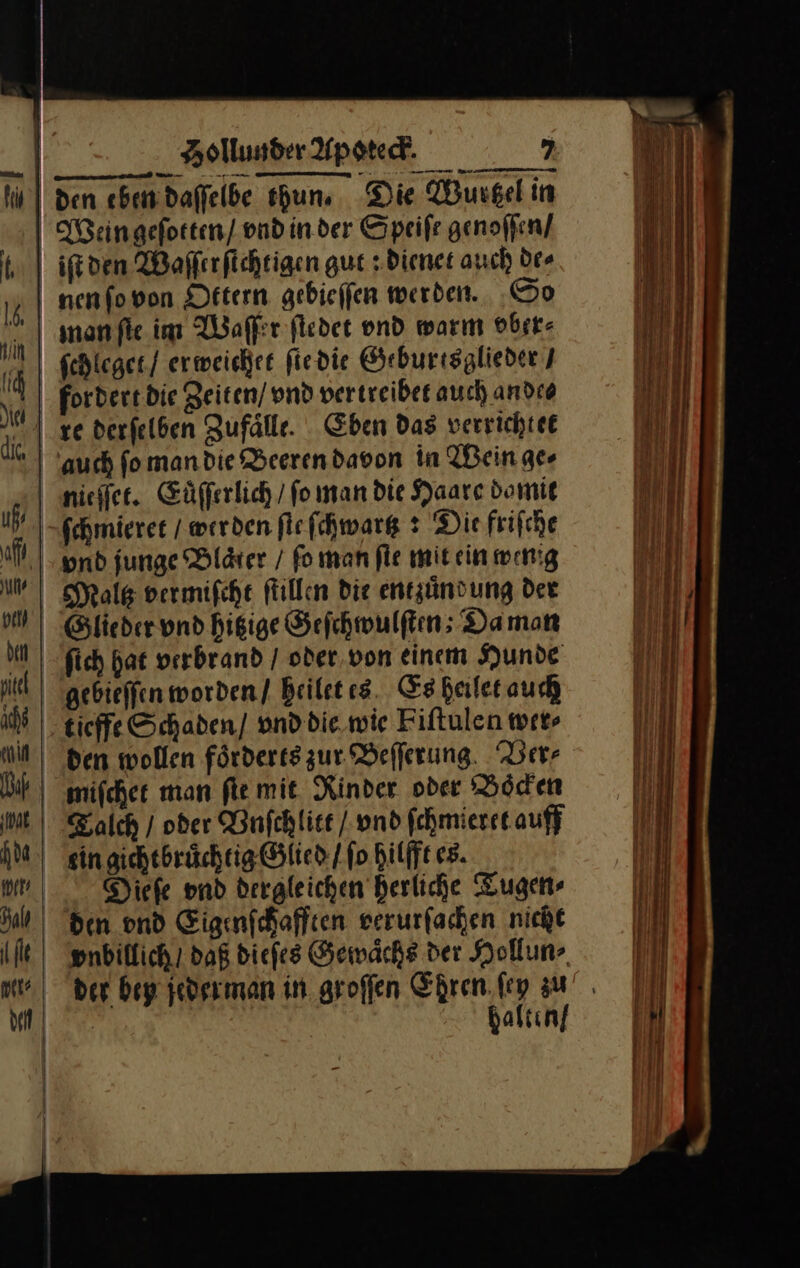 Hollunder Apoteck. 7
den eben dasselbe thun. Die Wurtzel in
Wein gesotten/ vnd in der Speise genossen/
ist den Wassersichtigen gut : dienet auch de⸗
nen so von Ottern gebiessen werden. So
man sie im Wasser siedet vnd warm vber⸗
schleget/ erweichet sie die Geburtsglieder /
fordert die Zeiten/ vnd vertreibet auch ande⸗
re derselben Zufålle. Eben das verrichtet
auch so man die Beeren davon in Wein ge⸗
niesset. Eůsserlich / so man die Haare domit
schmieret / werden sie schwartz : Die frische
vnd junge Blåter / so man sie mit ein wenig
Maltz vermischt stillen die entzůndung der
Glieder vnd hitzige Geschwulsten; Da man
sich hat verbrand / oder von einem Hunde
gebiessen worden/ heilet es. Es heilet auch
tieffe Schaden/ vnd die wie Fistulen wer⸗
den wollen fôrderts zur Besserung. Ver⸗
mischet man sie mit Rinder oder Bôcken
Talch / oder Vnschlitt / vnd schmieret auff
ein gichtbrůchtig Glied / so hilfft es.
Diese vnd dergleichen herliche Tugen⸗
den vnd Eigenschafften verursachen nicht
vnbillich/ daß dieses Gewåchs der Hollun⸗
der bey jederman in grossen Ehren sey zu
halten/